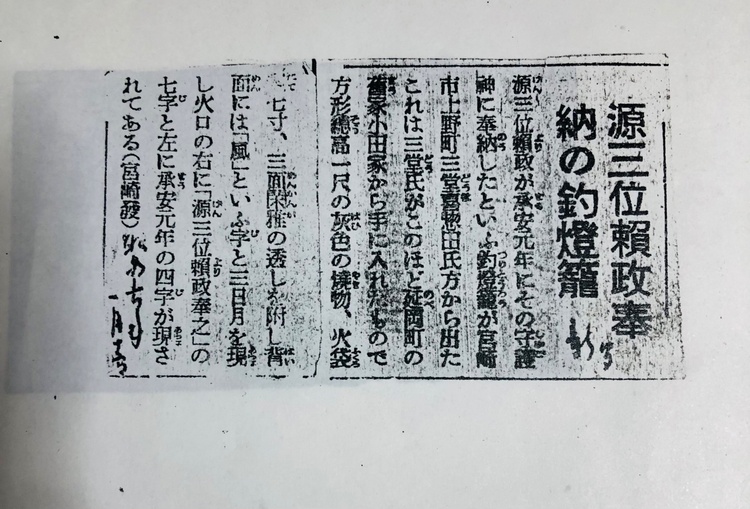 源三位頼政奉
納の釣燈籠
源三位頼政が承安元年にその守護
神に奉納したといふ釣燈籠が宮崎
市上野町三堂喜惣田氏方から出た
これは三堂氏がこのほど延岡町の
舊家小田家から手に入れたもので
方形總高一尺の灰色の燒物、火袋
七寸、三面閑雅の透しを附し背
面には「風」といふ字と三日月を現
し火口の右に「源三位頼政奉之」の
七字と左に承安元年の四字が現さ
れてある(宮崎發)